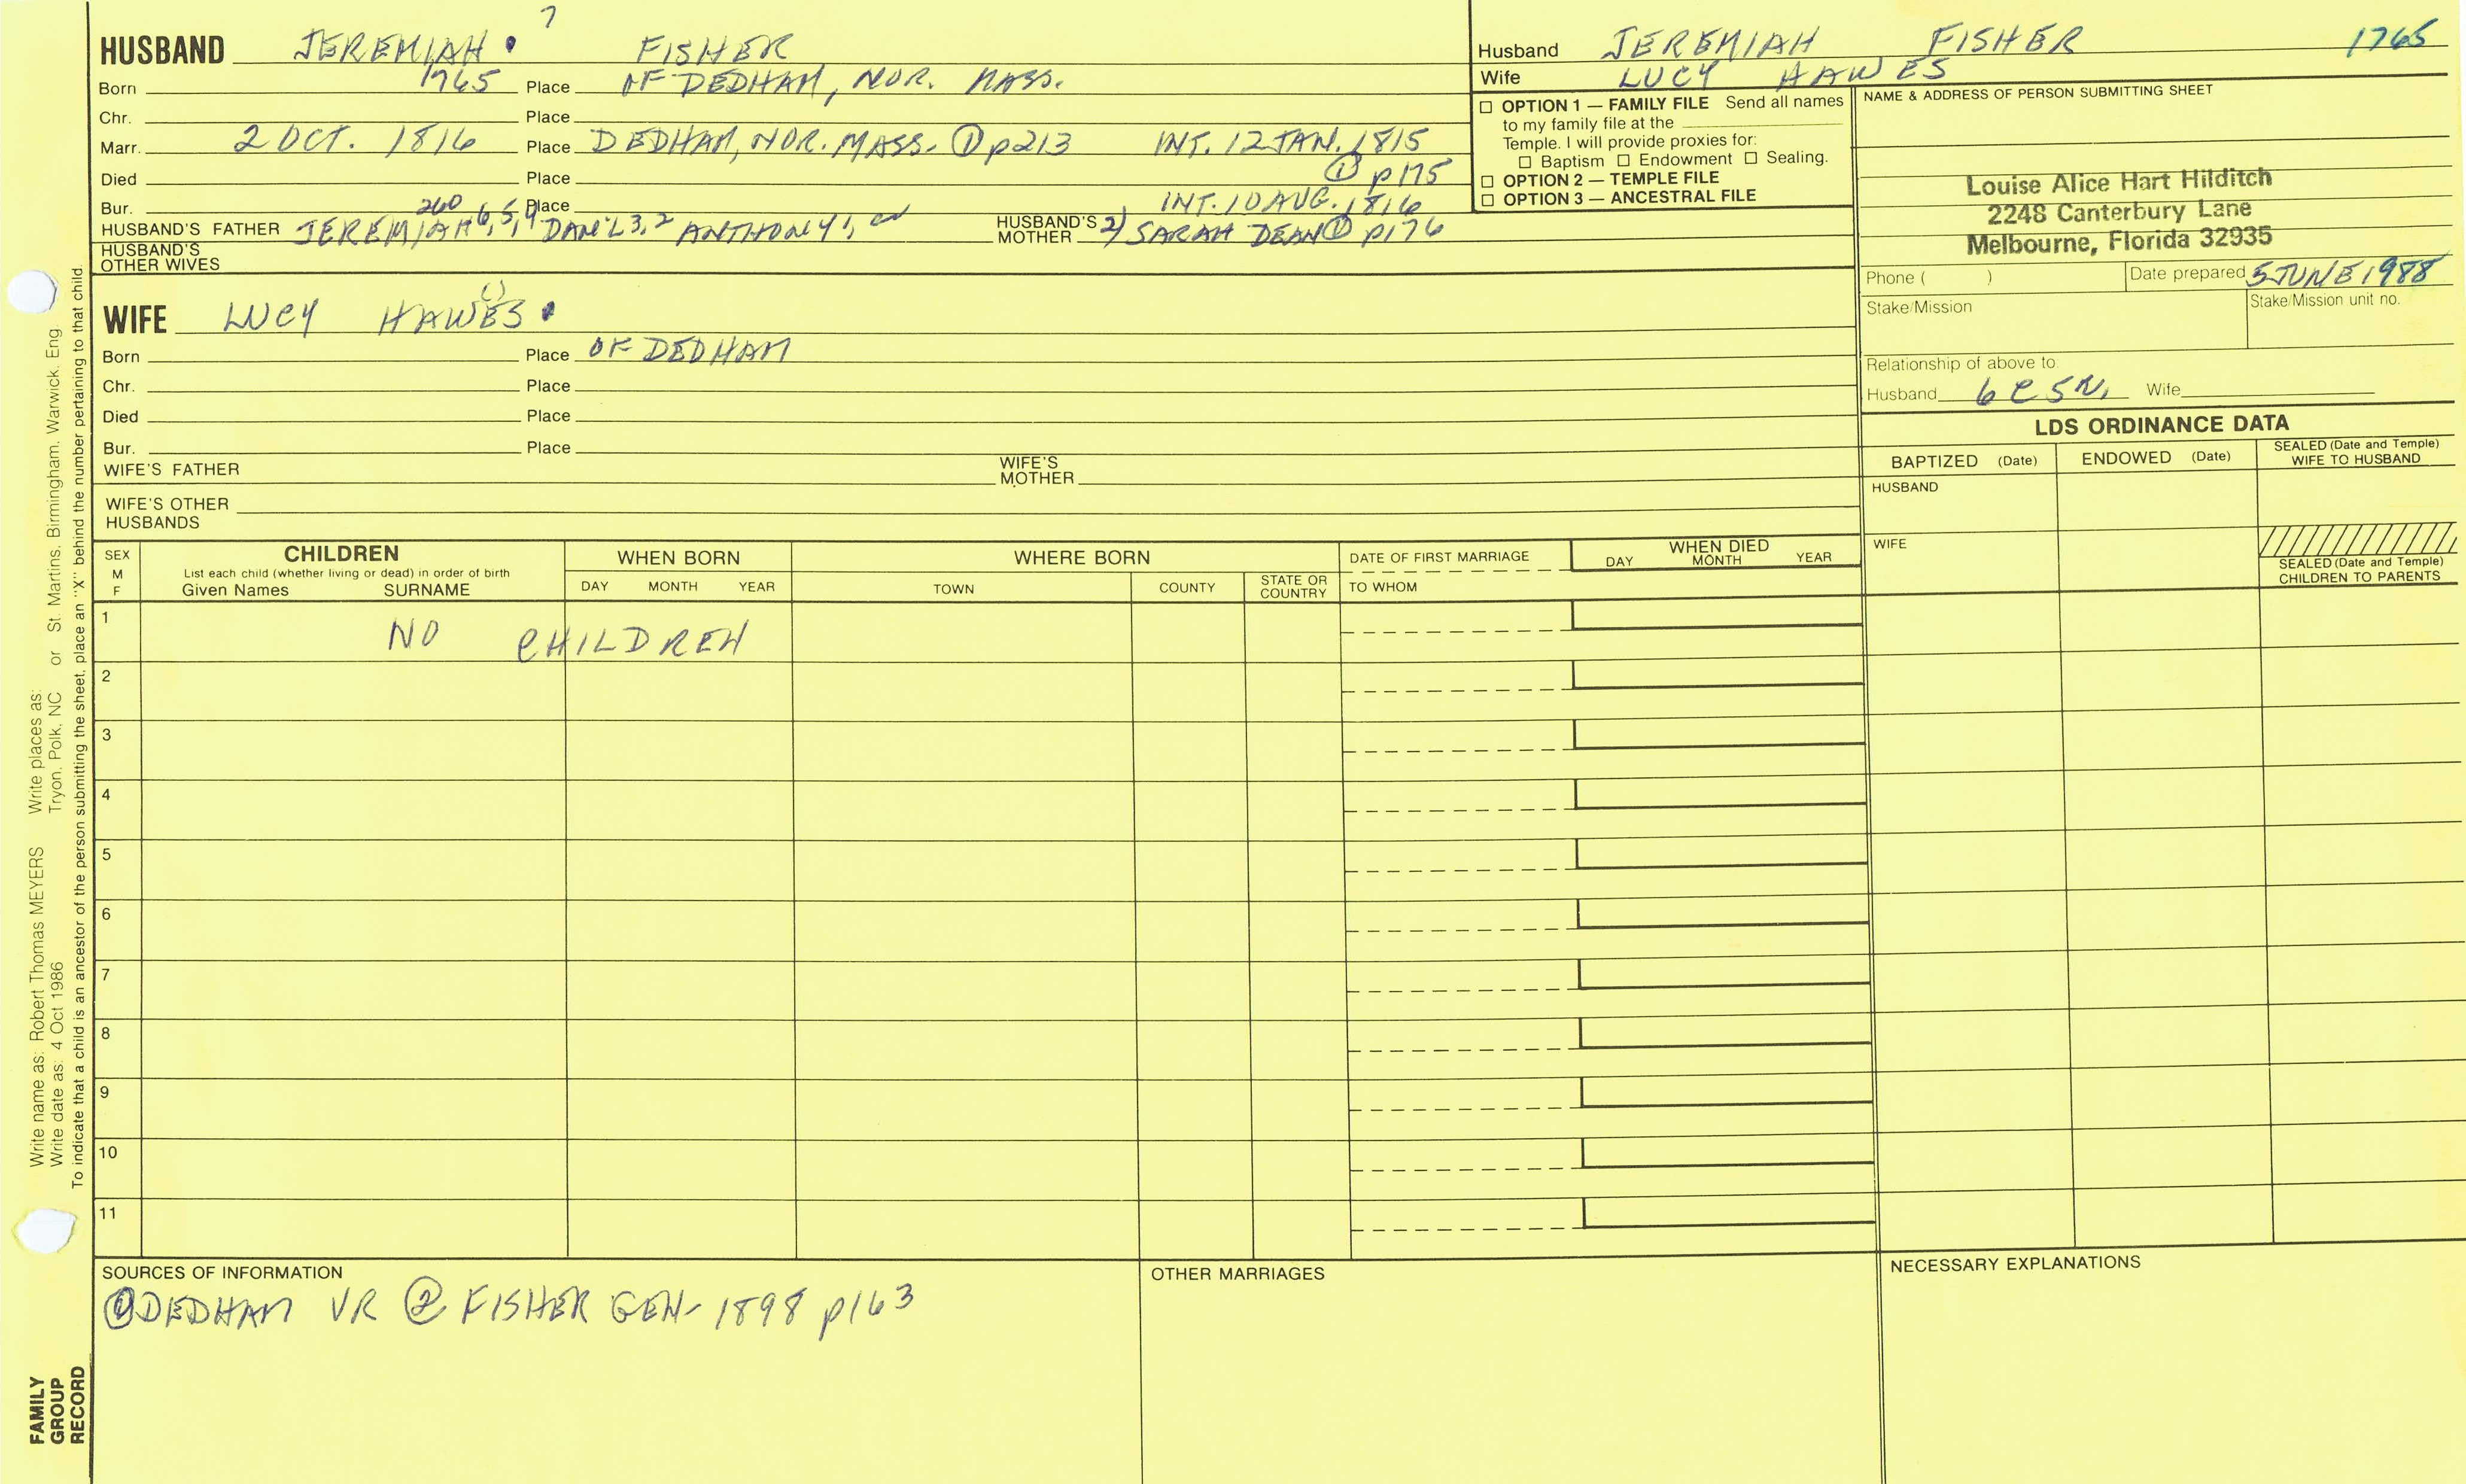 7
HUSBAND JEREMIAH FISHER
Born 1765 Place OF DEDHAM, NOR. MASS.
Chr. Place
Marr. 2 OCT. 1816 Place DEDHAM, NOR. MASS. ① p213 INT. 12 JAN. 1815
① p175
Died Place
Bur. Place INT. 10 AUG. 1816
260
HUSBAND'S FATHER JEREMIAH 6, 5, 4 DAN'L 3, 2 ANTHONY 1, HUSBAND'S MOTHER 2) SARAH DEAN ① p176
HUSBAND'S OTHER WIVES
WIFE LUCY HAWES
Born Place OF DEDHAM
Chr. Place
Died Place
Bur. Place
WIFE'S FATHER WIFE'S MOTHER
WIFE'S OTHER HUSBANDS
Husband JEREMIAH FISHER 1765
Wife LUCY HAWES
☐ OPTION 1 — FAMILY FILE Send all names
to my family file at the
Temple. I will provide proxies for:
☐ Baptism ☐ Endowment ☐ Sealing.
☐ OPTION 2 — TEMPLE FILE
☐ OPTION 3 — ANCESTRAL FILE
NAME & ADDRESS OF PERSON SUBMITTING SHEET
Louise Alice Hart Hilditch
2248 Canterbury Lane
Melbourne, Florida 32935
Phone ( ) Date prepared 5 JUNE 1988
Stake/Mission Stake/Mission unit no.
Relationship of above to:
Husband 6C5R, Wife
LDS ORDINANCE DATA
BAPTIZED (Date) ENDOWED (Date) SEALED (Date and Temple) WIFE TO HUSBAND
HUSBAND
WIFE
SEALED (Date and Temple)
CHILDREN TO PARENTS
SEX M F
CHILDREN
List each child (whether living or dead) in order of birth
Given Names SURNAME
WHEN BORN
DAY MONTH YEAR
WHERE BORN
TOWN COUNTY STATE OR COUNTRY
DATE OF FIRST MARRIAGE
TO WHOM
WHEN DIED
DAY MONTH YEAR
1 NO CHILDREN
2
3
4
5
6
7
8
9
10
11
SOURCES OF INFORMATION
① DEDHAM VR ② FISHER GEN- 1898 p163
OTHER MARRIAGES
NECESSARY EXPLANATIONS
Write name as: Robert Thomas MEYERS Write places as:
Write date as: 4 Oct 1986 Tryon, Polk, NC or St. Martins, Birmingham, Warwick, Eng
To indicate that a child is an ancestor of the person submitting the sheet, place an "X" behind the number pertaining to that child.
FAMILY
GROUP
RECORD